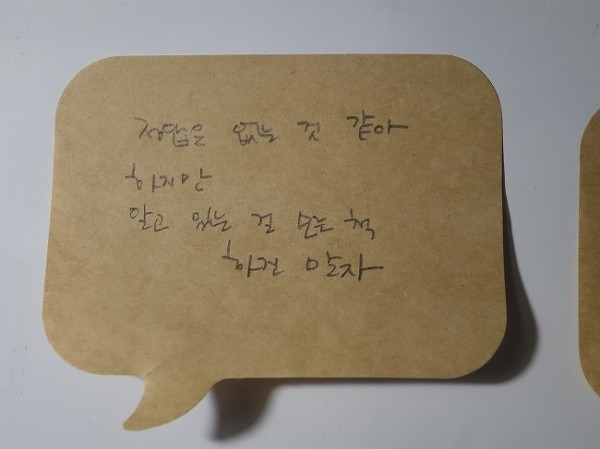 정답은 없는 것 같아
하지만
알고 있는 걸 모르는 척
하진 말자